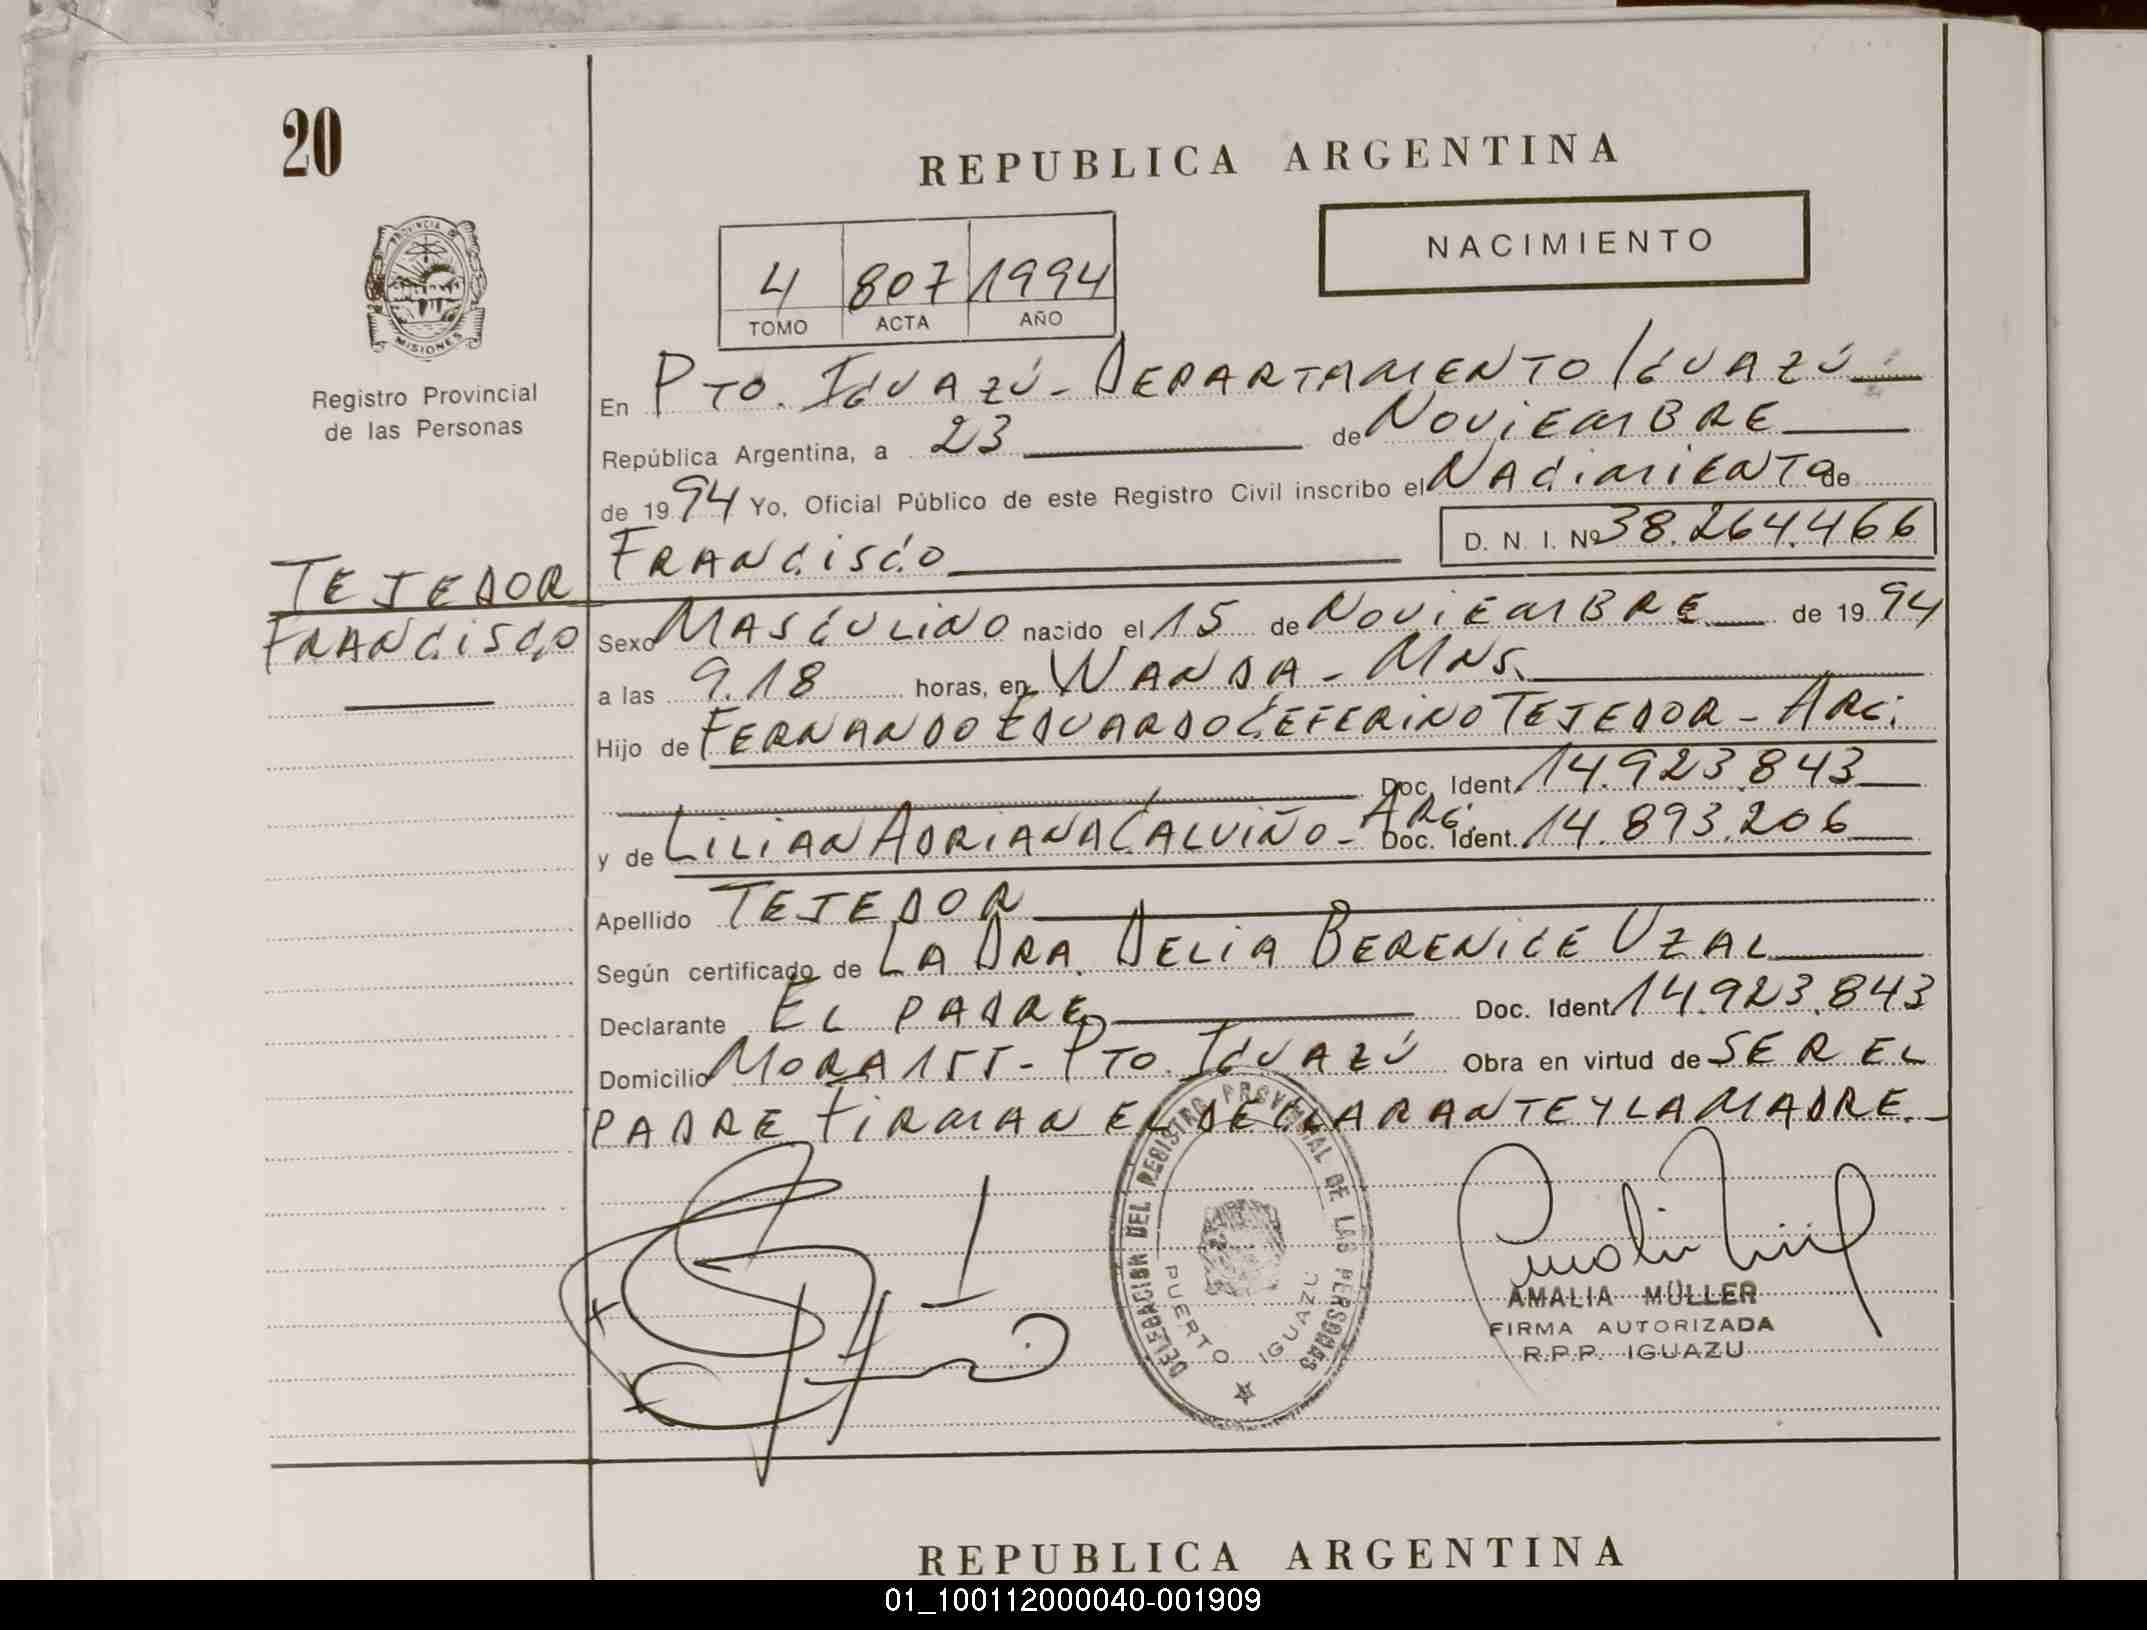 20
REPUBLICA ARGENTINA
NACIMIENTO
4 807 1994
TOMO ACTA AÑO
PROVINCIA DE
MISIONES
Registro Provincial
de las Personas
En PTO. IGUAZÚ - DEPARTAMENTO IGUAZÚ
República Argentina, a 23 de NOVIEMBRE
de 1994 Yo, Oficial Público de este Registro Civil inscribo el NACIMIENTO de
FRANCISCO D. N. I. Nº 38.264.466
TEJEDOR
FRANCISCO
Sexo MASCULINO nacido el 15 de NOVIEMBRE de 1994
a las 9.18 horas, en WANDA - MNS.
Hijo de FERNANDO EDUARDO CEFERINO TEJEDOR - ARG.
Doc. Ident. 14.923.843
y de LILIAN ADRIANA CALVIÑO - ARG. Doc. Ident. 14.893.206
Apellido TEJEDOR
Según certificado de LA DRA. DELIA BERENICE UZAL
Declarante EL PADRE Doc. Ident. 14.923.843
Domicilio MORA 155 - PTO. IGUAZÚ Obra en virtud de SER EL
PADRE FIRMAN EL DECLARANTE Y LA MADRE.-
DELEGACION DEL REGISTRO PROVINCIAL DE LAS PERSONAS
PUERTO IGUAZU
AMALIA MÜLLER
FIRMA AUTORIZADA
R.P.P. IGUAZU
REPUBLICA ARGENTINA
01_100112000040-001909